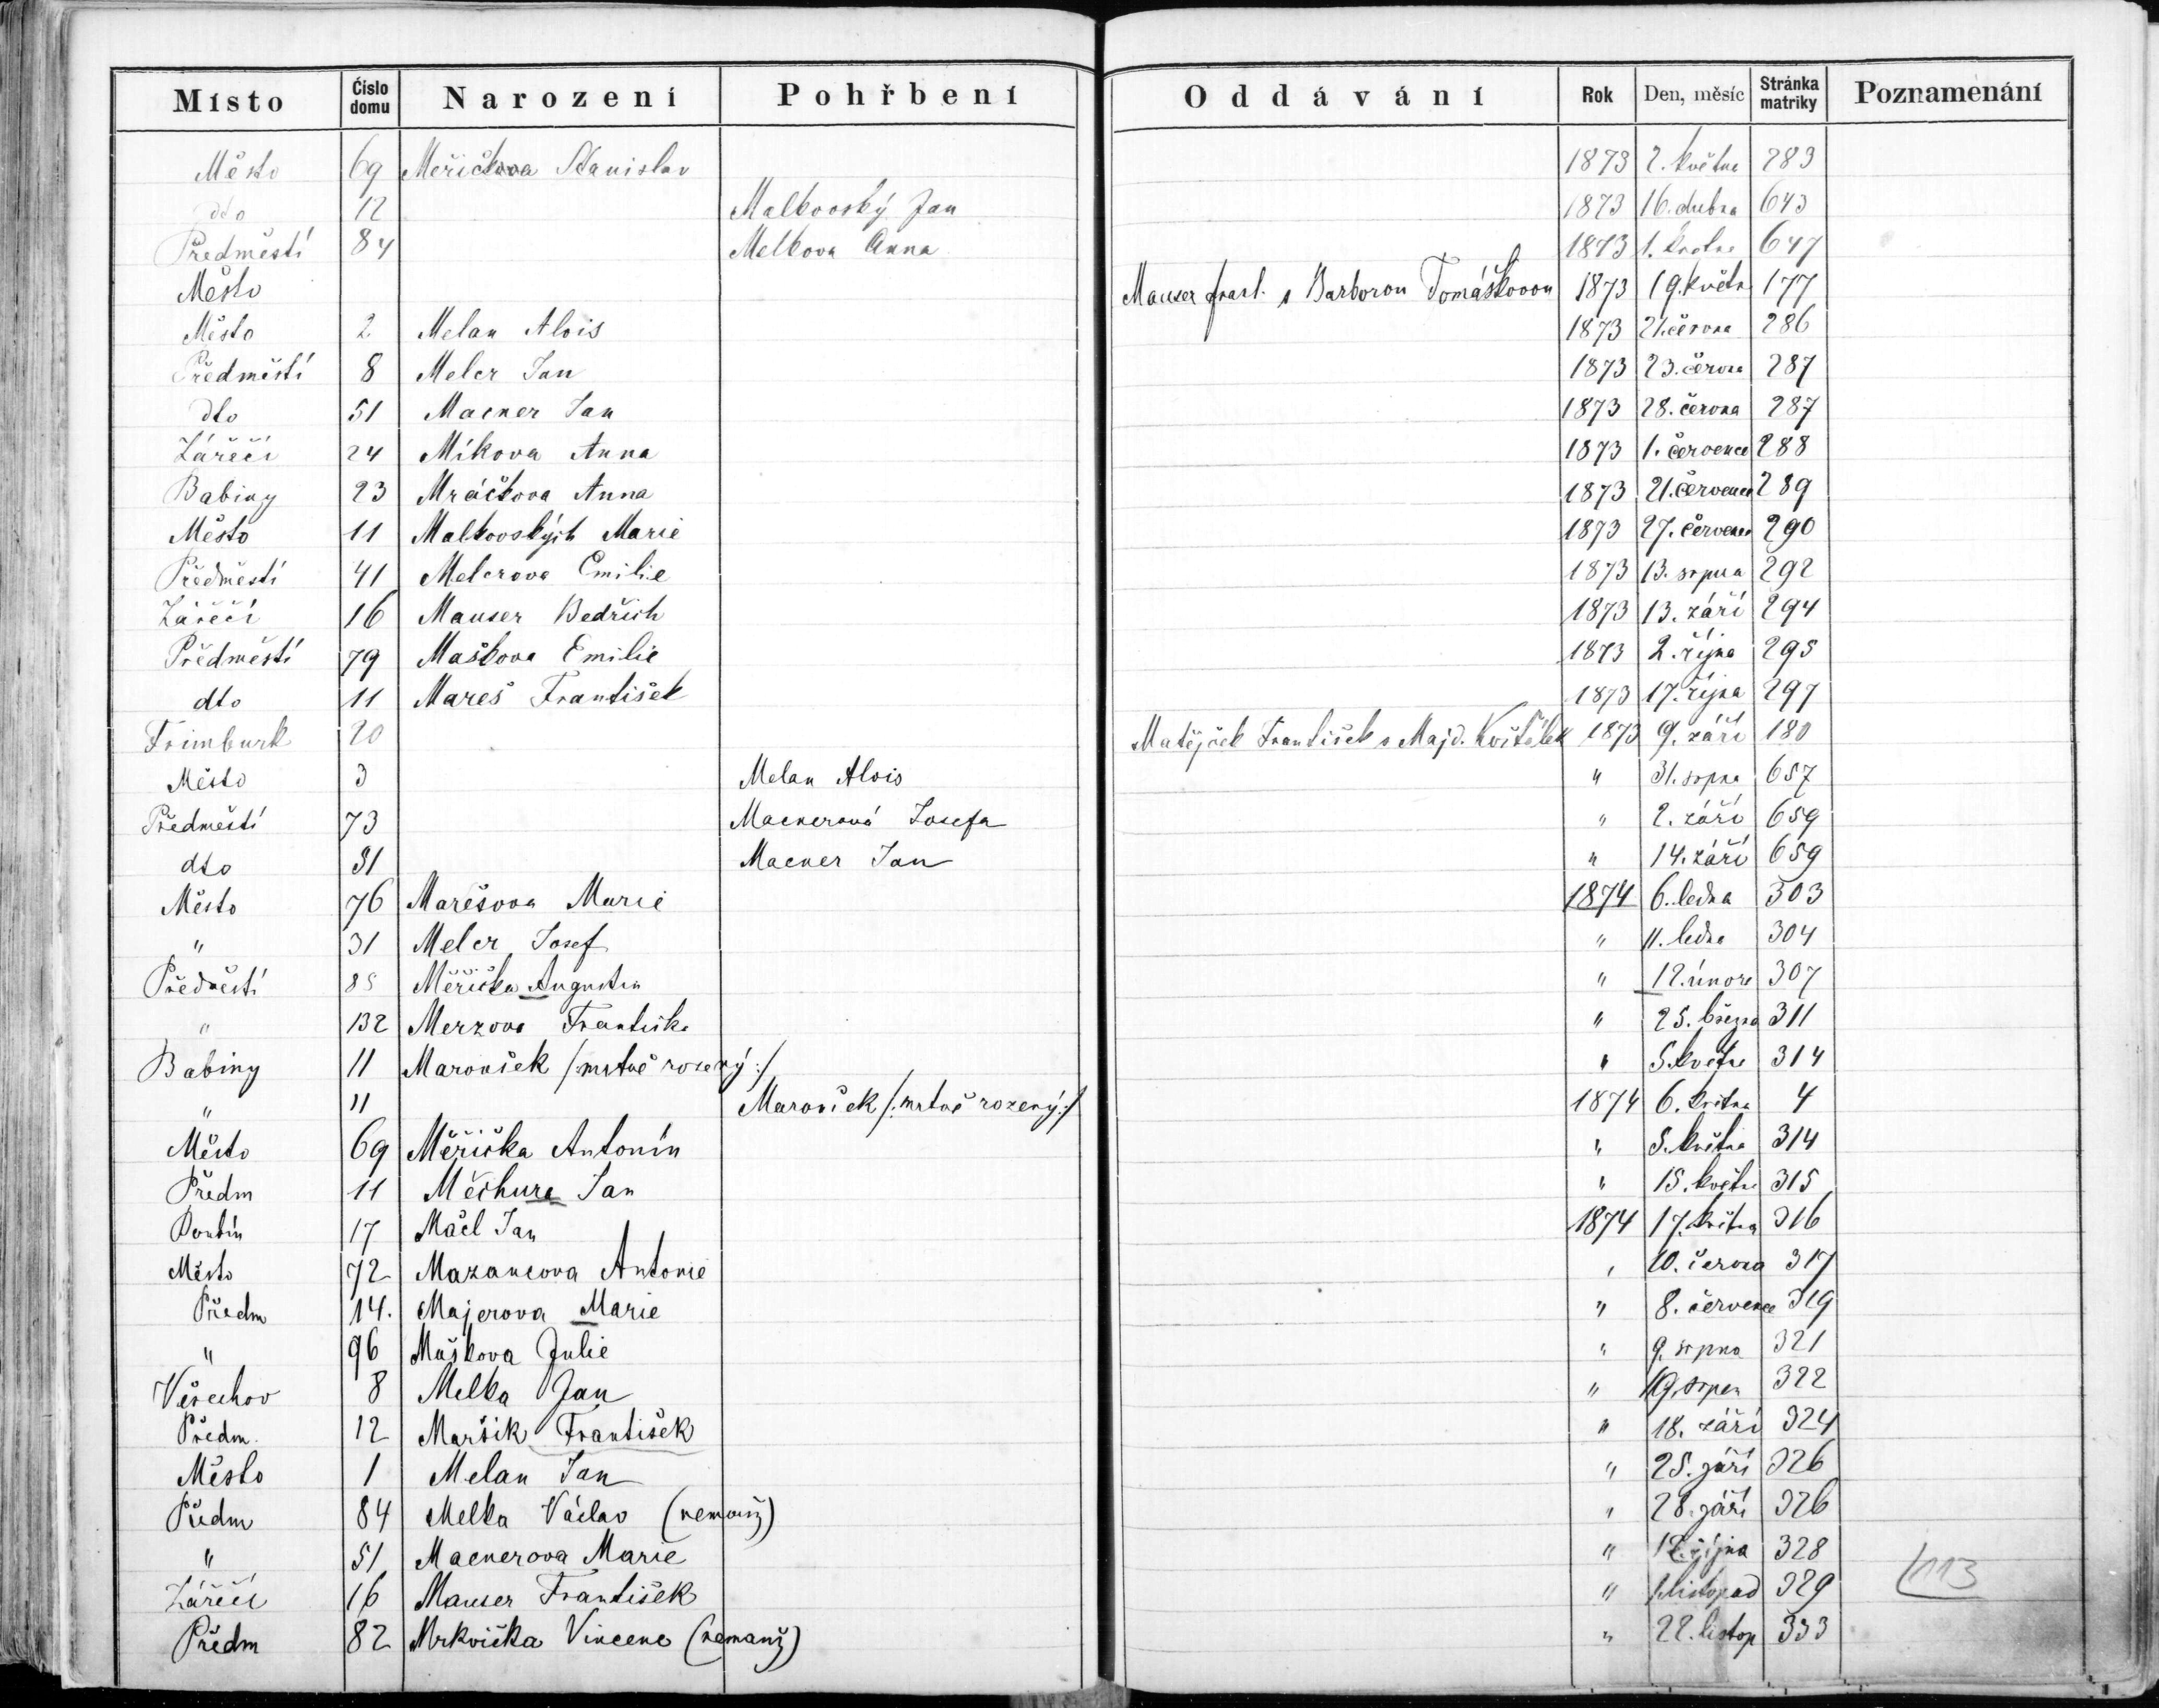 Místo Číslo domu Narození Pohřbení Oddávání Rok Den, měsíc Stránka matriky Poznamenání
Město 69 Meřičkova Stanislav 1873 2. května 283
dto 12 Malkovský Jan 1873 16. dubna 643
Předměstí 84 Melkova Anna 1873 1. května 647
Město Mauser s Barborou Tomáškovou 1873 19. květn 177
Město 2 Melan Alois 1873 21. června 286
Předměstí 8 Melcr Jan 1873 23. června 287
dto 51 Macner Jan 1873 28. června 287
Zářečí 24 Míkova Anna 1873 1. července 288
Babiny 23 Mráčkova Anna 1873 21. července 289
Město 11 Malkovských Marie 1873 27. července 290
Předměstí 41 Melcrova Emilie 1873 13. srpna 292
Zářečí 16 Mauser Bedřich 1873 13. září 294
Předměstí 79 Maškova Emilie 1873 2. října 295
dto 11 Mareš František 1873 17. října 297
Frimburk 20 Matějček František s Majd. 1873 9. září 180
Město 3 Melan Alois " 31. srpna 657
Předměstí 73 Macnerová Josefa " 2. září 659
dto 51 Macner Jan " 14. září 659
Město 76 Marešova Marie 1874 6. ledna 303
" 31 Melcr Josef " 11. ledna 304
Předměstí 85 Měřička Augustin " 12. února 307
" 132 Merzova Františka " 25. března 311
Babiny 11 Maroušek /:mrtvě rozený:/ " 5. květn 314
" 11 Maroušek /:mrtvě rozený:/ 1874 6. května 4
Město 69 Měřička Antonín " 5. května 314
Předm 11 Měchura Jan " 15. květn 315
17 Mácl Jan 1874 17. května 316
Město 72 Mazancova Antonie " 10. června 317
Předm 14. Majerova Marie " 8. července 319
" 96 Maškova Julie " 9. srpna 321
Věřechov 8 Melka Jan " 19. srpen 322
Předm. 12 Maršik František " 18. září 324
Město 1 Melan Jan " 25. září 326
Předm 84 Melka Václav (nemanž) " 28. září 326
" 51 Macnerova Marie " 12. října 328
Zářečí 16 Mauser František " listopad 329
113
Předm 82 Mrkvička Vincenc (nemanž) " 22. listop 333